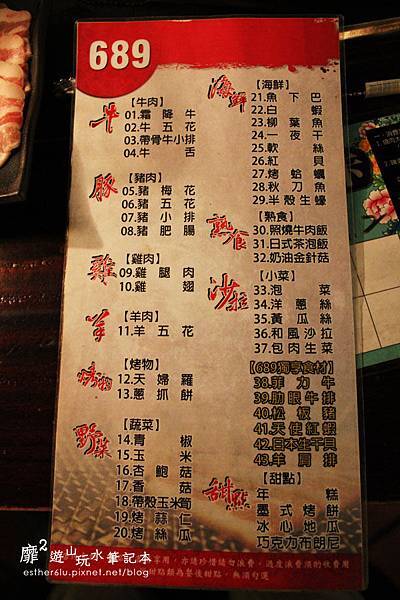 689
牛
【牛肉】
01.霜降牛
02.牛五花
03.帶骨牛小排
04.牛舌
豚
【豬肉】
05.豬梅花
06.豬五花
07.豬小排
08.豬肥腸
雞
【雞肉】
09.雞腿肉
10.雞翅
羊
【羊肉】
11.羊五花
烤物
【烤物】
12.天婦羅
13.蔥抓餅
野菜
【蔬菜】
14.青椒
15.玉米
16.杏鮑菇
17.香菇
18.帶殼玉米筍
19.烤蒜仁
20.烤絲瓜
海鮮
【海鮮】
21.魚下巴
22.白蝦
23.柳葉魚
24.一夜干
25.軟絲
26.紅貝
27.烤蛤蠣
28.秋刀魚
29.半殼生蠔
熟食
【熟食】
30.照燒牛肉飯
31.日式茶泡飯
32.奶油金針菇
沙拉
【小菜】
33.泡菜
34.洋蔥絲
35.黃瓜絲
36.和風沙拉
37.包肉生菜
【689獨享食材】
38.菲力牛
39.肋眼牛排
40.松板豬
41.天使紅蝦
42.日本生干貝
43.羊肩排
甜點
【甜點】
年糕
墨式烤餅
冰心地瓜
巧克力布朗尼
享用，亦請珍惜請勿浪費，過度浪費須酌收費用
甜點類為餐後甜點，無須勾選
靡2遊山玩水筆記本
esther6lu.pixnet.net/blog